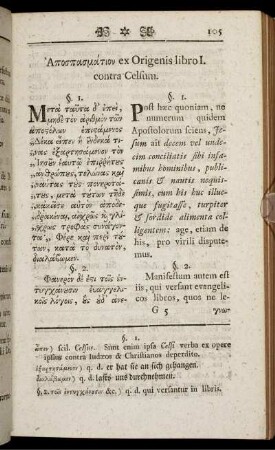 105
Ἀποσπασμάτιον ex Origenis libro I.
contra Celsum.
§. 1.
Μετὰ ταῦτα δ' ἐπεὶ,
μηδὲ τὸν ἀριθμὸν τῶν
ἀποςόλων ἐπιςάμενος
δέκα εἶπεν ἢ ἕνδεκά τι-
νας ἐξαρτησάμενον τὸν
Ἰησοῦν ἑαυτῷ ἐπιῤῥήτες
ἀνθρώπες, τελώνας καὶ
ναύτας τὰς πονηροτά-
τες, μετὰ τέτων τῇδε
κᾀκεῖσε αὐτὸν ἀποδε-
δρακέναι, αἰχρῶς καὶ γλί-
χρως τροφὰς συνάγον-
τα, Φέρε καὶ περὶ τέ-
των, κατὰ τὸ δυνατὸν,
διαλάβωμεν.
§. 2.
Φανερὸν δὲ ὅτι τοῖς ἐν-
τυγχάνεσιν εὐαγγελι-
κοῖς λόγοις, ἃς ἐδ' ἀνε-
§. 1.
Post hæc quoniam, ne
numerum quidem
Apostolorum sciens, Je-
sum ait decem vel unde-
cim conciliatis sibi infa-
mibus hominibus, publi-
canis & nautis nequis-
simis, cum his huc illuc-
que fugitasse, turpiter
& sordide alimenta col-
ligentem: age, etiam de
his, pro virili dispute-
mus.
§. 2.
Manifestum autem est
iis, qui versant evangeli-
cos libros, quos ne le-
G 5
γνω-
§. 1.
εἶπεν) scil. Celsus. Sunt enim ipsa Celsi verba ex opere
ipsius contra Iudæos & Christianos deperdito.
ἐξαρτησάμενον) q. d. er hat sie an sich gehangen.
διαλάβωμεν) q. d. laßt uns durchnehmen.
§. 2. τοῖς ἐντυγχάνεσιν &c.) q. d. qui versantur in libris.